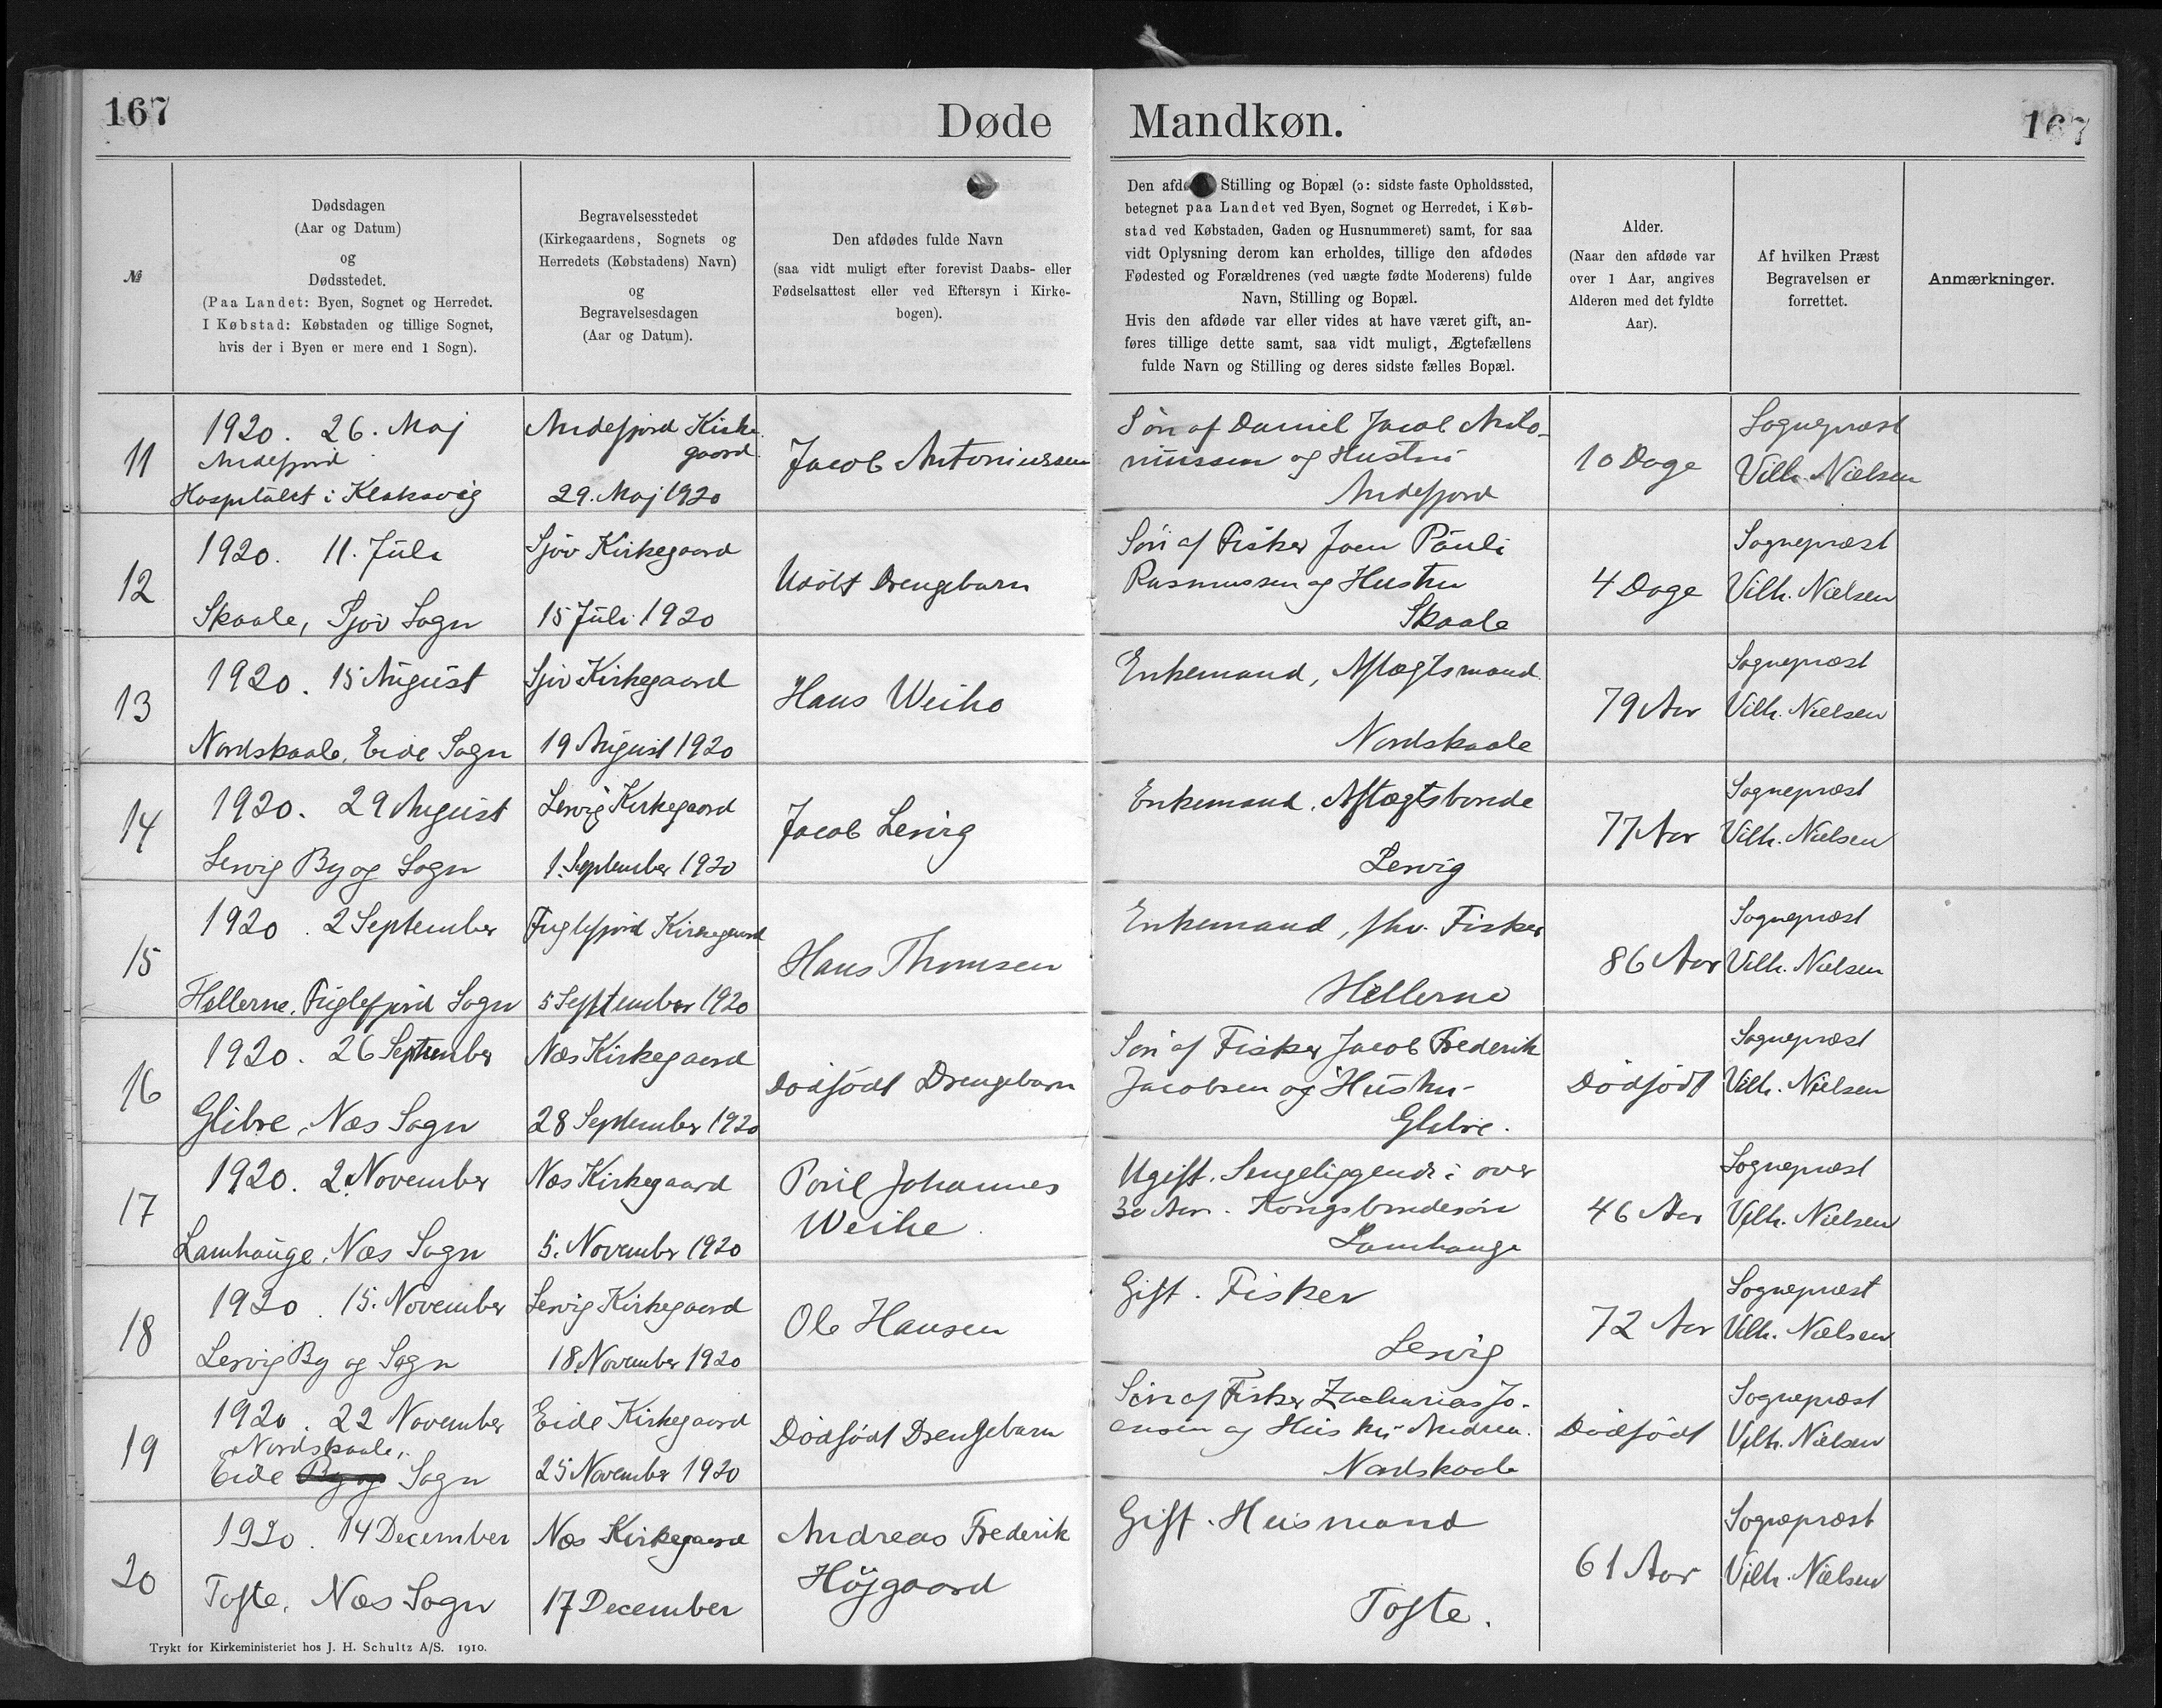 167
Døde
Mandkøn.
167
№
Dødsdagen
(Aar og Datum)
og
Dødsstedet.
(Paa Landet: Byen, Sognet og Herredet.
I Købstad: Købstaden og tillige Sognet,
hvis der i Byen er mere end 1 Sogn).
Begravelsesstedet
(Kirkegaardens, Sognets og
Herredets (Købstadens) Navn)
og
Begravelsesdagen
(Aar og Datum).
Den afdødes fulde Navn
(saa vidt muligt efter forevist Daabs- eller
Fødselsattest eller ved Eftersyn i Kirke-
bogen).
Den afd Stilling og Bopæl (ɔ: sidste faste Opholdssted,
betegnet paa Landet ved Byen, Sognet og Herredet, i Køb-
stad ved Købstaden, Gaden og Husnummeret) samt, for saa
vidt Oplysning derom kan erholdes, tillige den afdødes
Fødested og Forældrenes (ved uægte fødte Moderens) fulde
Navn, Stilling og Bopæl.
Hvis den afdøde var eller vides at have været gift, an-
føres tillige dette samt, saa vidt muligt, Ægtefællens
fulde Navn og Stilling og deres sidste fælles Bopæl.
Alder.
(Naar den afdøde var
over 1 Aar, angives
Alderen med det fyldte
Aar).
Af hvilken Præst
Begravelsen er
forrettet.
Anmærkninger.
11
1920. 26. Maj
Andefjord
Hospitalet i Klaksvig
Andefjord Kirke
gaard
29. Maj 1920
Jacob Antoniussen
Søn af Daniel Jacob Anto-
niussen og Hustru
Andefjord
10 Dage
Sognepræst
Vilh. Nielsen
12
1920. 11. Juli
Skaale, Sjov Sogn
Sjov Kirkegaard
15 Juli 1920
Udöbt Drengebarn
Søn af Fisker Joen Pauli
Rasmussen og Hustru
Skaale
4 Dage
Sognepræst
Vilh. Nielsen
13
1920. 15 August
Nordskaale, Eide Sogn
Sjov Kirkegaard
19 August 1920
Hans Weihe
Enkemand, Aftægtsmand
Nordskaale
79 Aar
Sognepræst
Vilh. Nielsen
14
1920. 29 August
Lervig By og Sogn
Lervig Kirkegaard
1. September 1920
Jacob Lervig
Enkemand, Aftægtsbonde
Lervig
77 Aar
Sognepræst
Vilh. Nielsen
15
1920. 2 September
Hellerne, Fuglefjord Sogn
Fuglefjord Kirkegaard
5 September 1920
Hans Thomsen
Enkemand, fhv. Fisker
Hellerne
86 Aar
Sognepræst
Vilh. Nielsen
16
1920. 26 September
Glibre, Næs Sogn
Næs Kirkegaard
28 September 1920
Dødfødt Drengebarn
Søn af Fisker Jacob Frederik
Jacobsen og Hustru
Glibre.
Dødfødt
Sognepræst
Vilh. Nielsen
17
1920. 2. November
Lamhauge, Næs Sogn
Næs Kirkegaard
5. November 1920
Poul Johannes
Weihe
Ugift. Sengeliggende i over
30 Aar. Kongsbondesøn
Lamhauge
46 Aar
Sognepræst
Vilh. Nielsen
18
1920. 15. November
Lervig By og Sogn
Lervig Kirkegaard
18. November 1920
Ole Hansen
Gift. Fisker
Lervig
72 Aar
Sognepræst
Vilh. Nielsen
19
1920. 22 November
Nordskaale,
Eide By og Sogn
Eide Kirkegaard
25 November 1920
Dødfødt Drengebarn
Søn af Fisker Zacharias Jo-
ensen og Hustru Andrea.
Nordskaale
Dødfødt
Sognepræst
Vilh. Nielsen
20
1920. 14 December
Tofte, Næs Sogn
Næs Kirkegaard
17 December
Andreas Frederik
Höjgaard
Gift. Husmand
Tofte.
61 Aar
Sognepræst
Vilh. Nielsen
Trykt for Kirkeministeriet hos J. H. Schultz A/S. 1910.